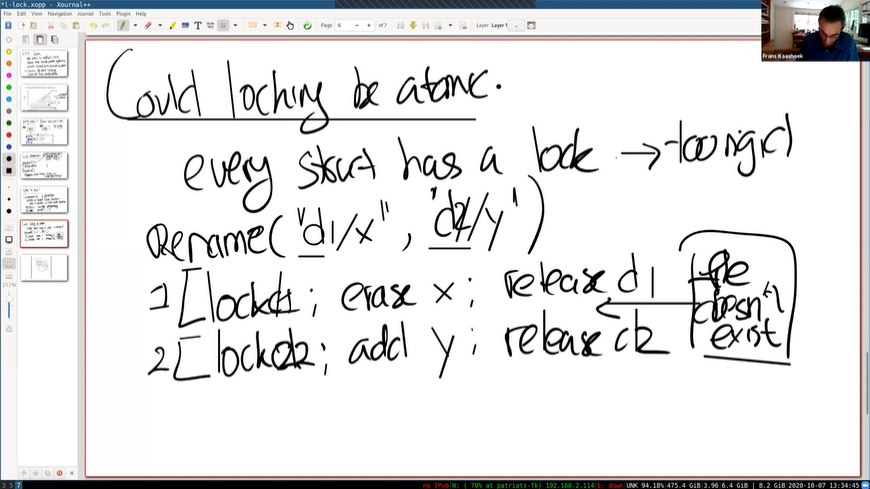 *l-lock.xopp - Xournal++
File Edit View Navigation Journal Tools Plugin Help
Page 6 of 7 Layer Layer 1
Frans Kaashoek
Could locking be atomic.
every struct has a lock → too rigid
Rename("d1/x", "d2/y")
1 [ lock d1; erase x; release d1
file doesn't exist
2 [ lock d2; add y; release d2
251%
3 5 7
no IPv6|W: ( 70% at patriots-fk) 192.168.2.114|E: down|UN 94.18%|475.4 GiB|3.96|6.4 GiB | 8.2 GiB|2020-10-07 13:34:45